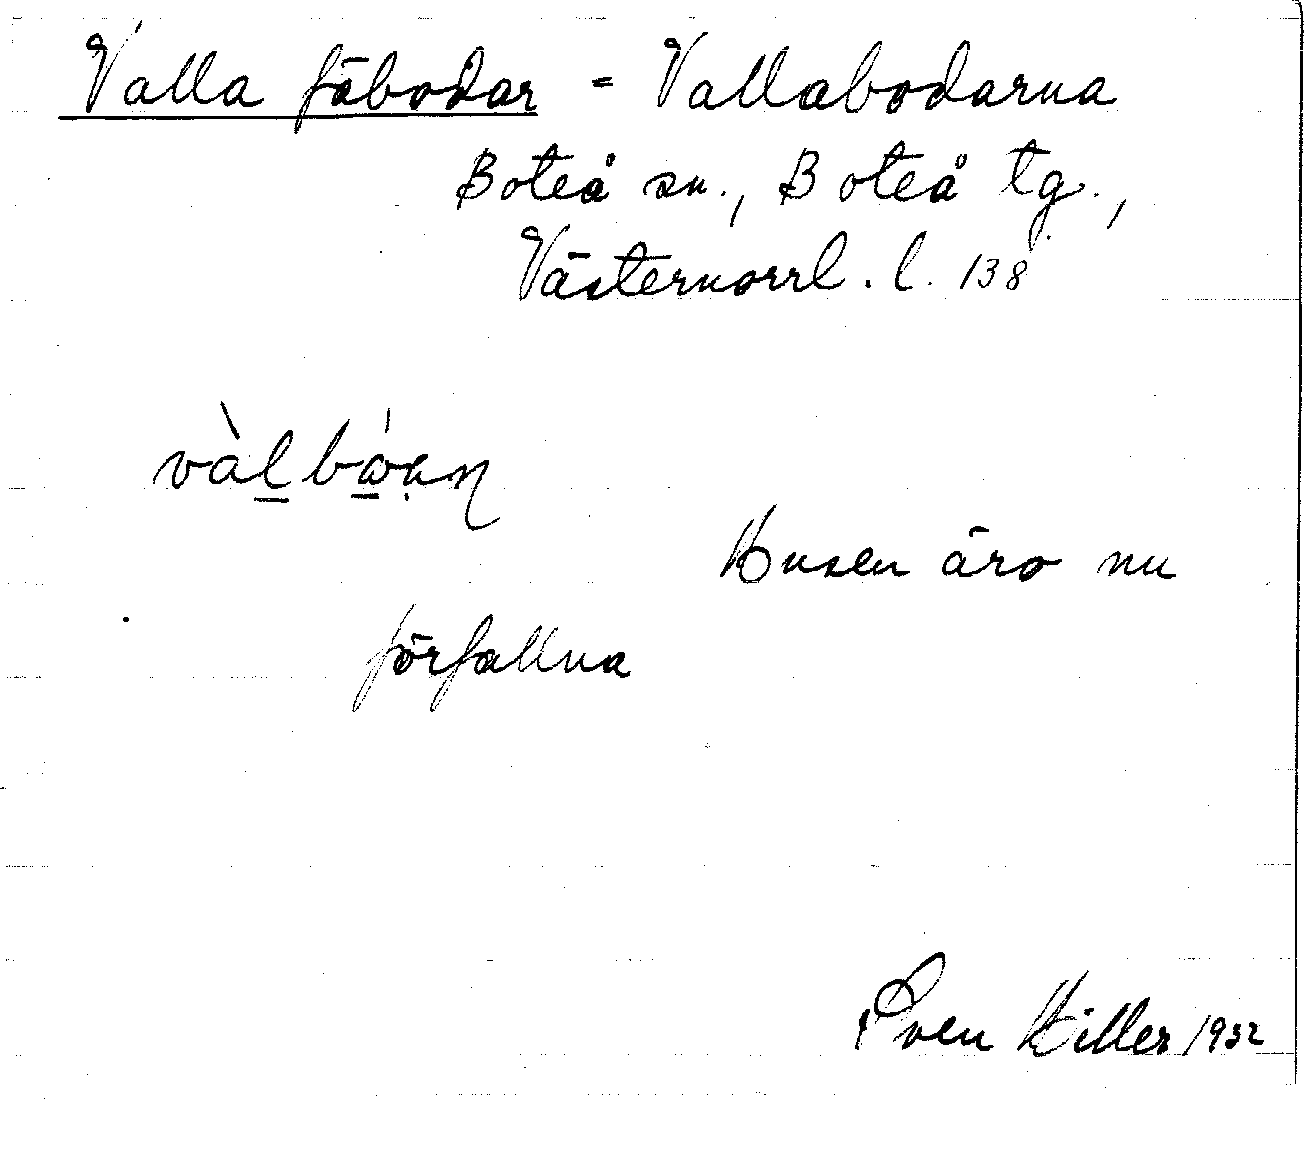 Valla fäbodar = Vallabodarna
Boteå sn., Boteå tg.,
Västernorrl. l. 138
Husen äro nu
förfallna
Sven Hiller 1932